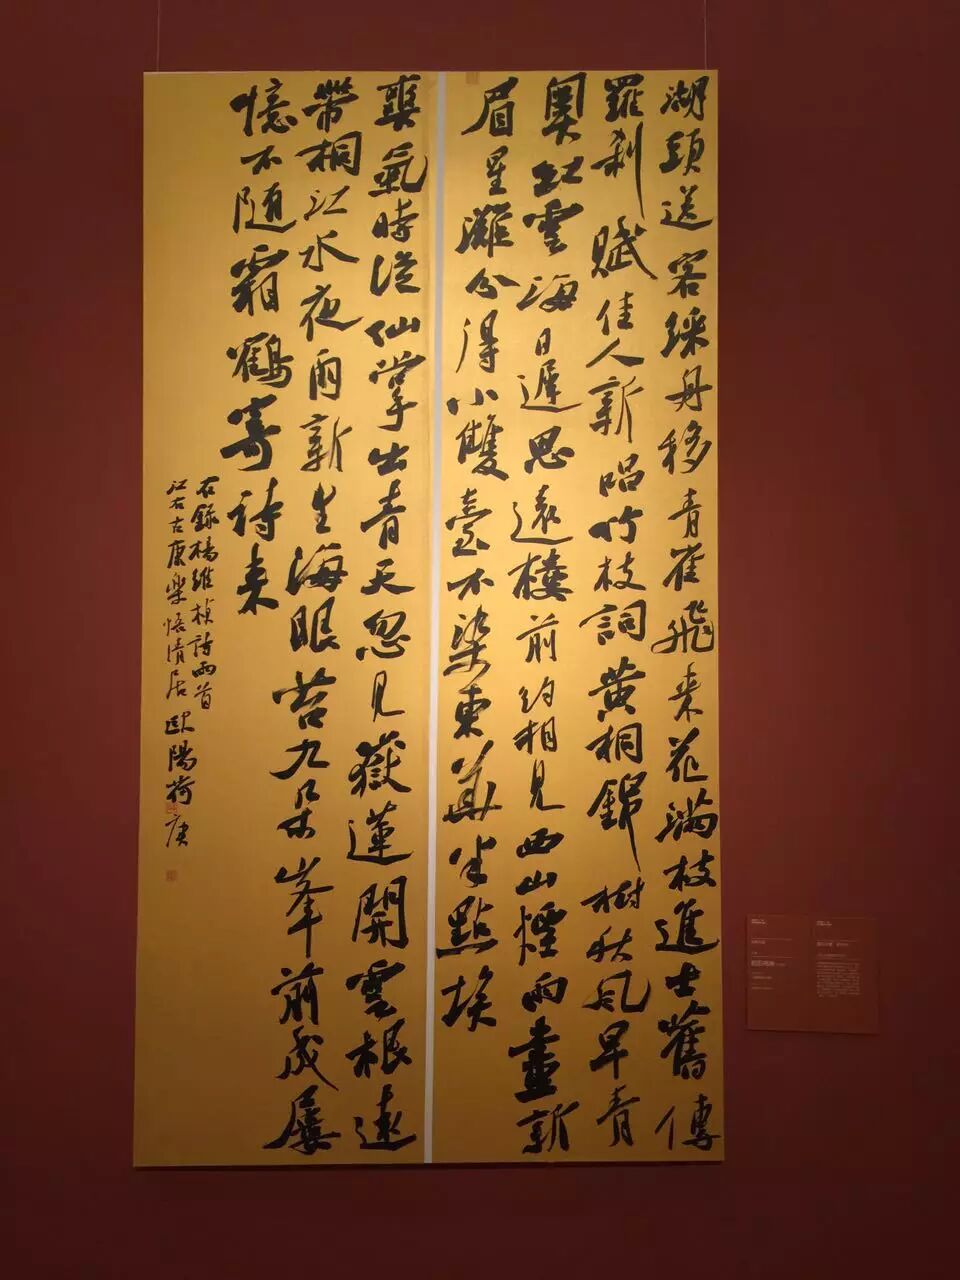 湖頭送客綵舟移青雀飛来花滿枝進士舊傳
羅刹賦佳人新唱竹枝詞黄桐錦樹秋風早青
奧紅雲海日遲思遠樓前約相見西山煙雨畫新
眉星灘分得小雙臺不染東華半點埃
爽氣時從仙掌出青天忽見嶽蓮開雲根遠
帶桐江水夜雨新生海眼苔九朵峯前成屢
憶不随霜鶴寄詩来
右錄楊維楨詩兩首
江右古康樂悟情居歐陽荷庚